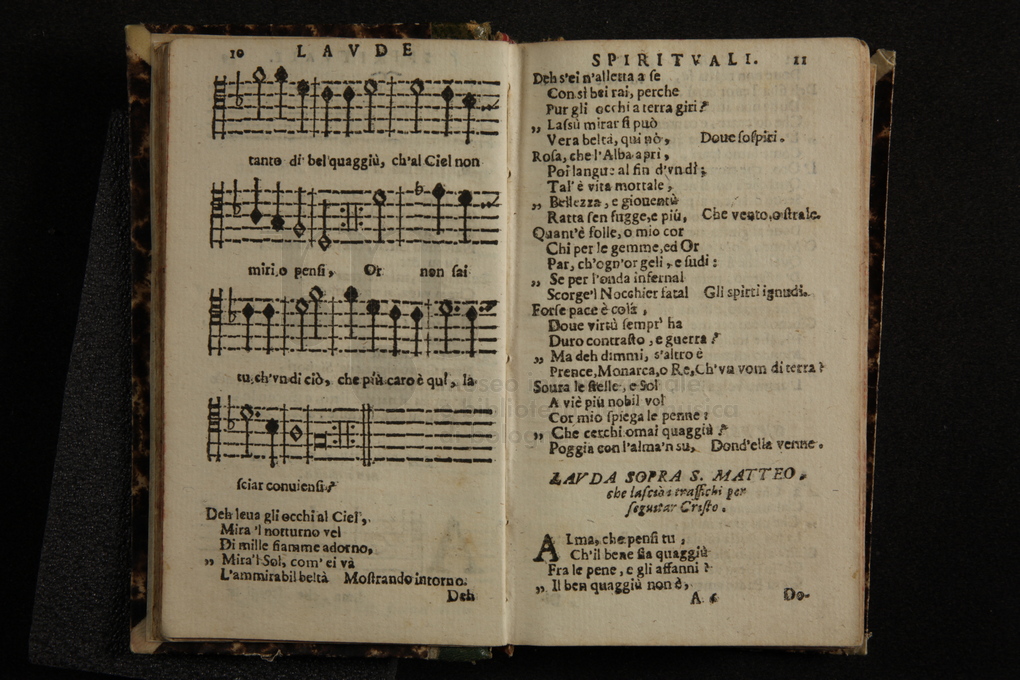 10 LAVDE
tanto di bel quaggiù, ch'al Ciel non
miri, o pensi, Or non sai
tu, ch'vn dì ciò, che più caro è quì, la-
sciar conuiensi?
Deh leua gli occhi al Ciel,
Mira 'l notturno vel
Di mille fiamme adorno,
„ Mira'l Sol, com' ei và
L'ammirabil beltà Mostrando intorno.
Deh
SPIRITVALI. 11
Deh s'ei n'alletta a se
Con sì bei rai, perche
Pur gli occhi a terra giri?
„ Lassù mirar si può
Vera beltà, qui nò, Doue sospiri.
Rosa, che l'Alba apri,
Poi langue al fin d'vn dì;
Tal' è vita mortale,
„ Bellezza, e giouentù
Ratta sen fugge, e più, Che vento, o strale.
Quant'è folle, o mio cor
Chi per le gemme, ed Or
Par, ch'ogn'or geli, e sudi:
„ Se per l'onda infernal
Scorge'l Nocchier fatal Gli spirti ignudi.
Forse pace è colà,
Doue virtù sempr' ha
Duro contrasto, e guerra?
„ Ma deh dimmi, s'altro è
Prence, Monarca, o Re, Ch'vn vom di terra?
Soura le stelle, e Sol
A viè più nobil vol
Cor mio spiega le penne:
„ Che cerchi omai quaggiù?
Poggia con l'alma'n su, Dond'ella venne.
LAVDA SOPRA S. MATTEO,
che lasciò i traffichi per
seguitar Cristo.
ALma, che pensi tu,
Ch'il bene sia quaggiù
Fra le pene, e gli affanni?
„ Il ben quaggiù non è,
A Do-